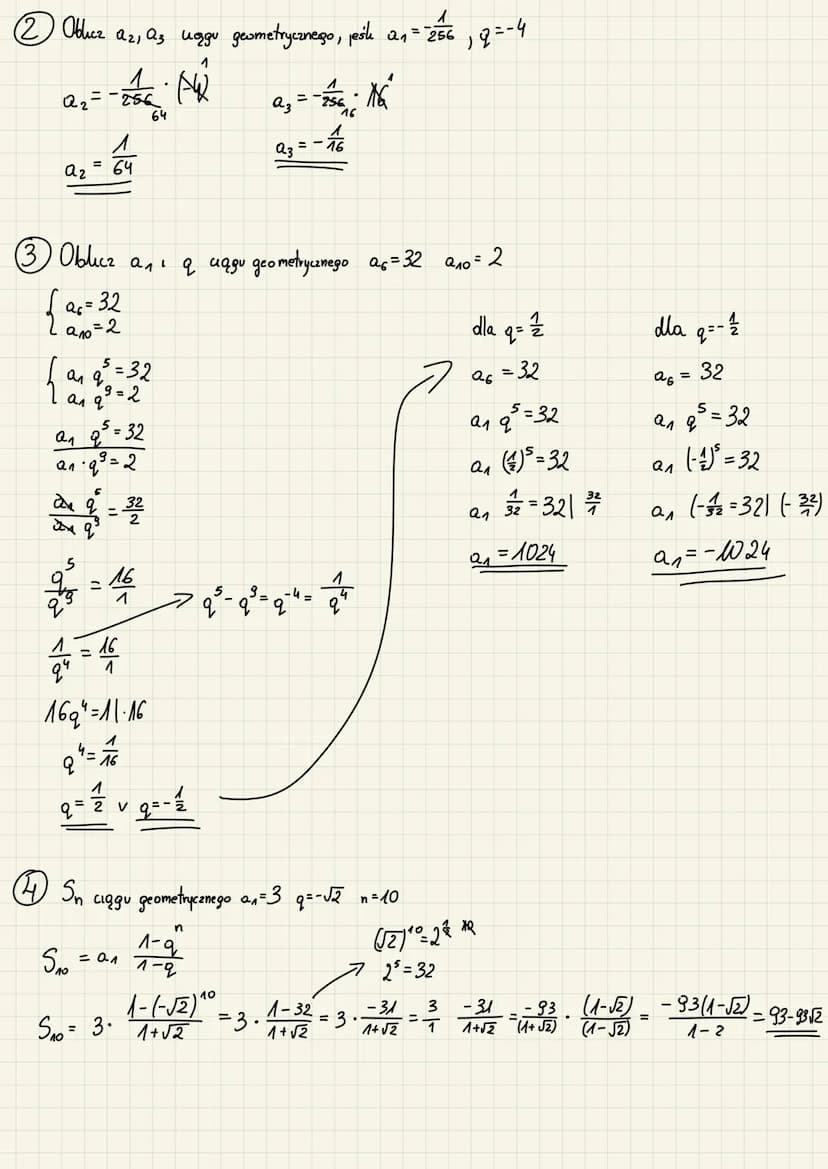 ② Oblicz a₂, a₃ ciągu geometrycznego, jeśli a₁ = -1/256, q = -4
a₂ = -1/256 · (-4)
1
64
a₃ = -1/256 · 16
1
16
a₂ = 1/64
a₃ = -1/16
③ Oblicz a₁ i q ciągu geometrycznego a₆ = 32 a₁₀ = 2
{ a₆ = 32
a₁₀ = 2
{ a₁ q⁵ = 32
a₁ q⁹ = 2
a₁ q⁵ = 32
a₁ · q⁹ = 2
a₁ q⁵ / a₁ q⁹ = 32/2
q⁵/q⁹ = 16/1
q⁵ - q⁹ = q⁻⁴ = 1/q⁴
1/q⁴ = 16/1
16q⁴ = 1 | · 16
q⁴ = 1/16
q = 1/2 v q = -1/2
dla q = 1/2
a₆ = 32
a₁ q⁵ = 32
a₁ (1/2)⁵ = 32
a₁ 1/32 = 32 | 32/1
a₁ = 1024
dla q = -1/2
a₆ = 32
a₁ q⁵ = 32
a₁ (-1/2)⁵ = 32
a₁ (-1/32 = 32 | (-32/1)
a₁ = -1024
④ Sₙ ciągu geometrycznego a₁ = 3 q = -√2 n = 10
S₁₀ = a₁ 1-qⁿ / 1-q
2⁵ = 32
S₁₀ = 3 · 1-(-√2)¹⁰ / 1+√2 = 3 · 1-32 / 1+√2 = 3 · -31 / 1+√2 = 3/1 -31 / 1+√2 = -93 / (1+√2) · (1-√2) / (1-√2) = -93(1-√2) / 1-2 = 93-93√2